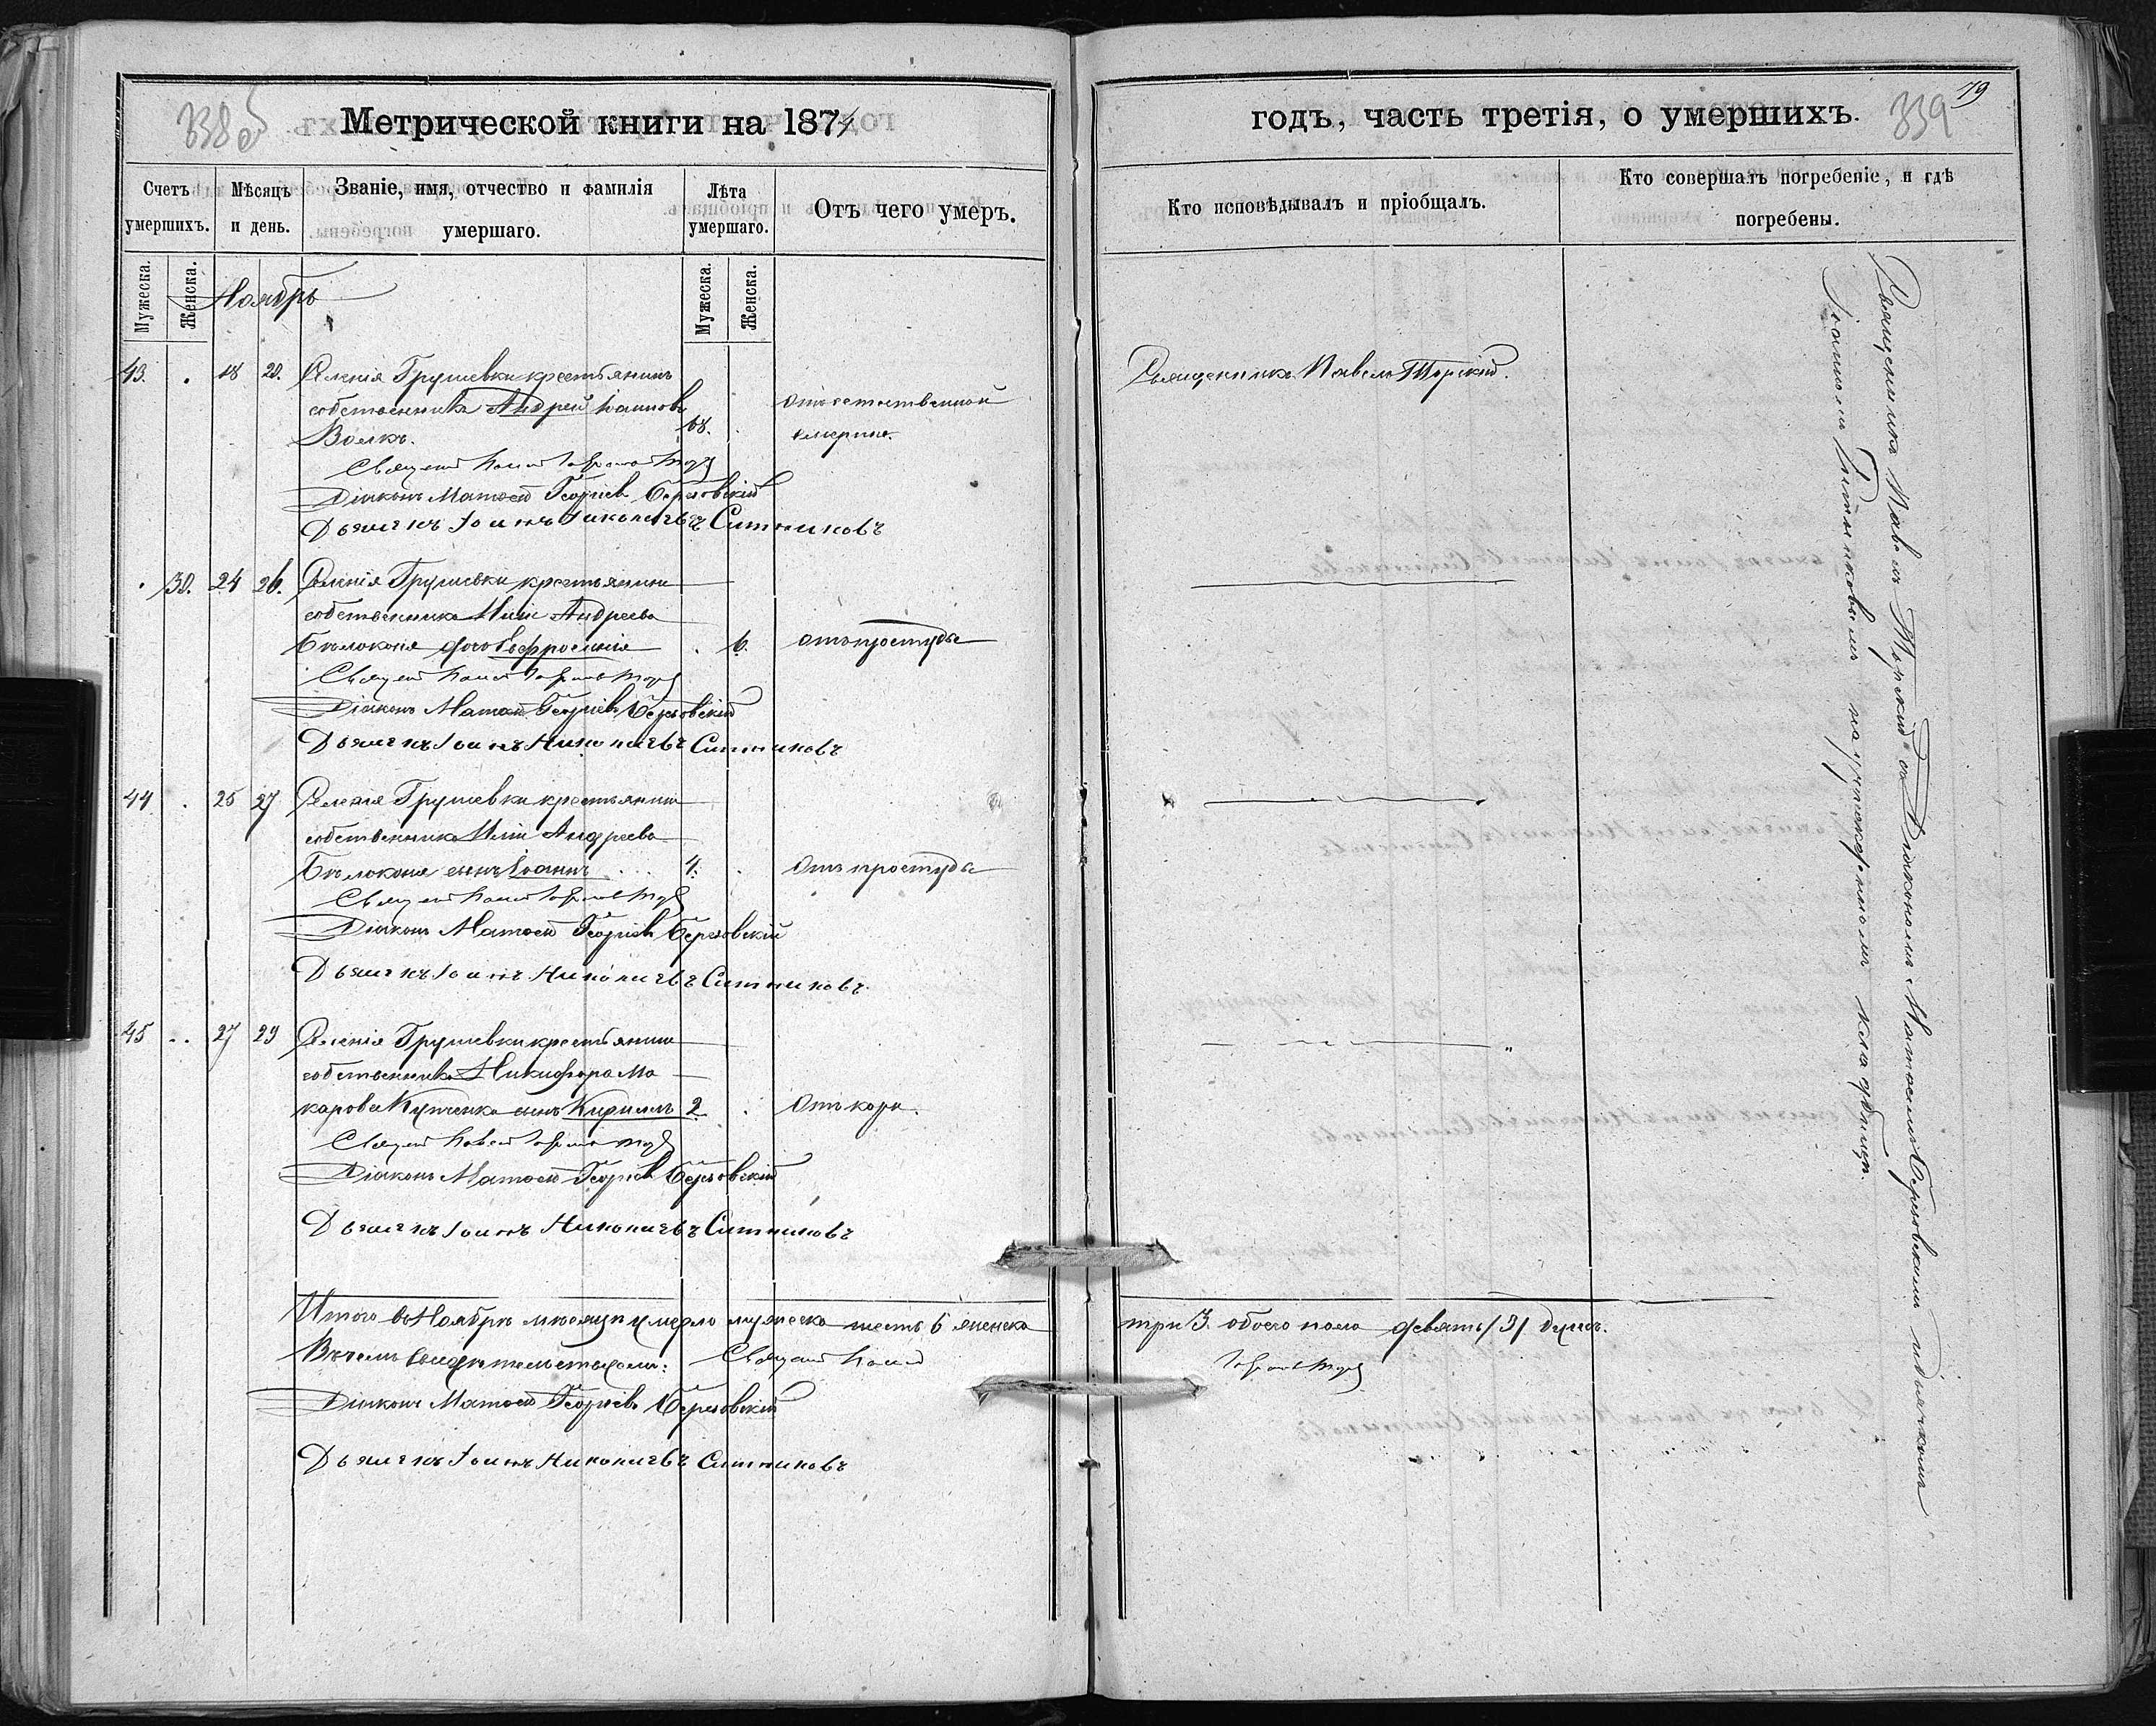 338 об
Метрической книги на 1874
Счетъ умершихъ.
Мѣсяцъ и день.
Званіе, имя, отчество и фамилія умершаго.
Лѣта умершаго.
Отъ чего умеръ.
Мужеска.
Женска.
Мужеска.
Женска.
Ноябрь
43. 18 20. Селенія Грушевки крестьянинъ
собственникъ Андрей Іоанновъ
Волкъ. 68. отъ естественной
смерти.
Священ Павел
Діаконъ Матѳей Георгіевъ Березовскій
Дьячекъ Іоаннъ Ситниковъ
30. 24 26. Селенія Грушевки крестьянина
собственника Иліи Андреева
Бѣлоконя дочь Евфросинія 6. отъ простуды
Священ Павел
Діаконъ Матѳей Георгіевъ Березовскій
Дьячекъ Іоаннъ Ситниковъ
44 25 27 Селенія Грушевки крестьянина
собственника Иліи Андреева
Бѣлоконя сынъ Іоаннъ 4. Отъ простуды
Священ Павел
Діаконъ Матѳей Георгіевъ Березовскій
Дьячекъ Іоаннъ Ситниковъ.
45 27 29 Селенія Грушевки крестьянина
собственника Никифора Ма
карова Купченка сынъ Кириллъ 2. Отъ кори.
Священ Павел
Діаконъ Матѳей Георгіевъ Березовскій
Дьячекъ Іоаннъ Ситниковъ
Итого въ Ноябрѣ мѣсяцѣ умерло мужеска шесть 6 женска
Въ чемъ свидѣтельствуемъ: Священ Павел
Діаконъ Матѳей Георгіевъ Березовскій
Дьячекъ Іоаннъ Ситниковъ
79
339
годъ, часть третія, о умершихъ.
Кто исповѣдывалъ и пріобщалъ.
Кто совершалъ погребеніе, и гдѣ погребены.
Священникъ Павелъ Торскій.
три 3. обоего пола девять /9/ душъ.
Священникъ Павелъ Торскій съ Діакономъ Матѳеемъ Березовскимъ и дьячкомъ
Іоанномъ Ситниковымъ на кладбищѣ.